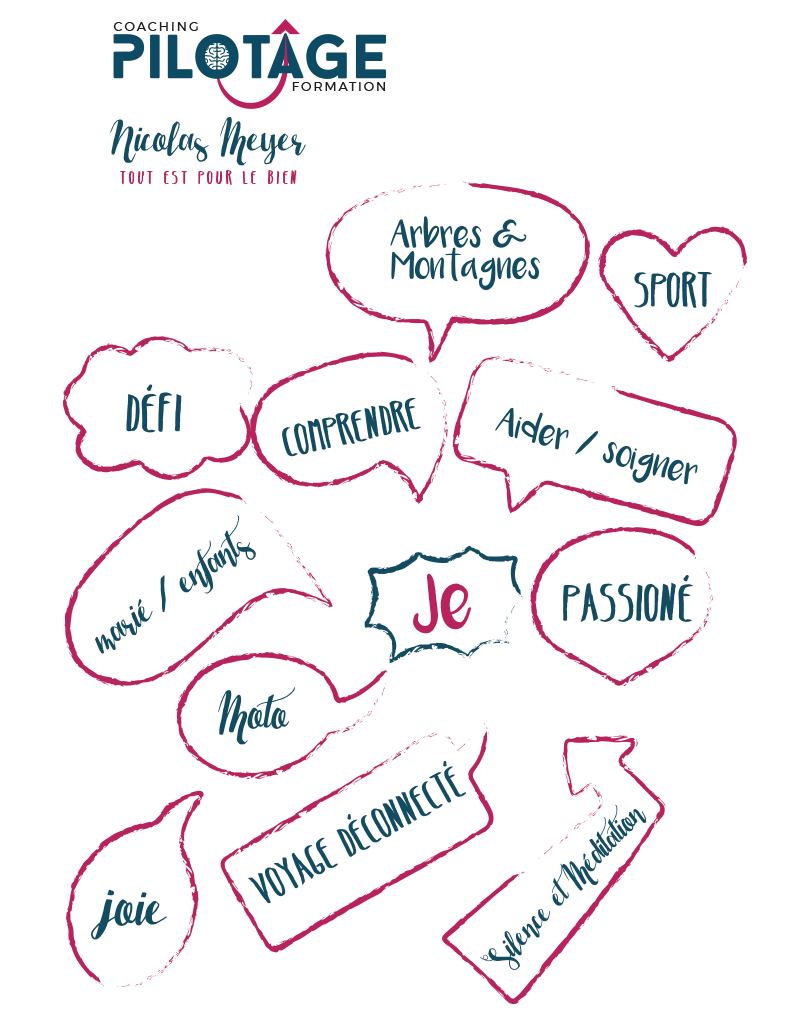 COACHING
PILOTAGE
FORMATION
Nicolas Meyer
TOUT EST POUR LE BIEN
Arbres &
Montagnes
SPORT
DÉFI
COMPRENDRE
Aider / soigner
marié / enfants
Je
PASSIONÉ
Moto
VOYAGE DÉCONNECTÉ
joie
Silence et Méditation